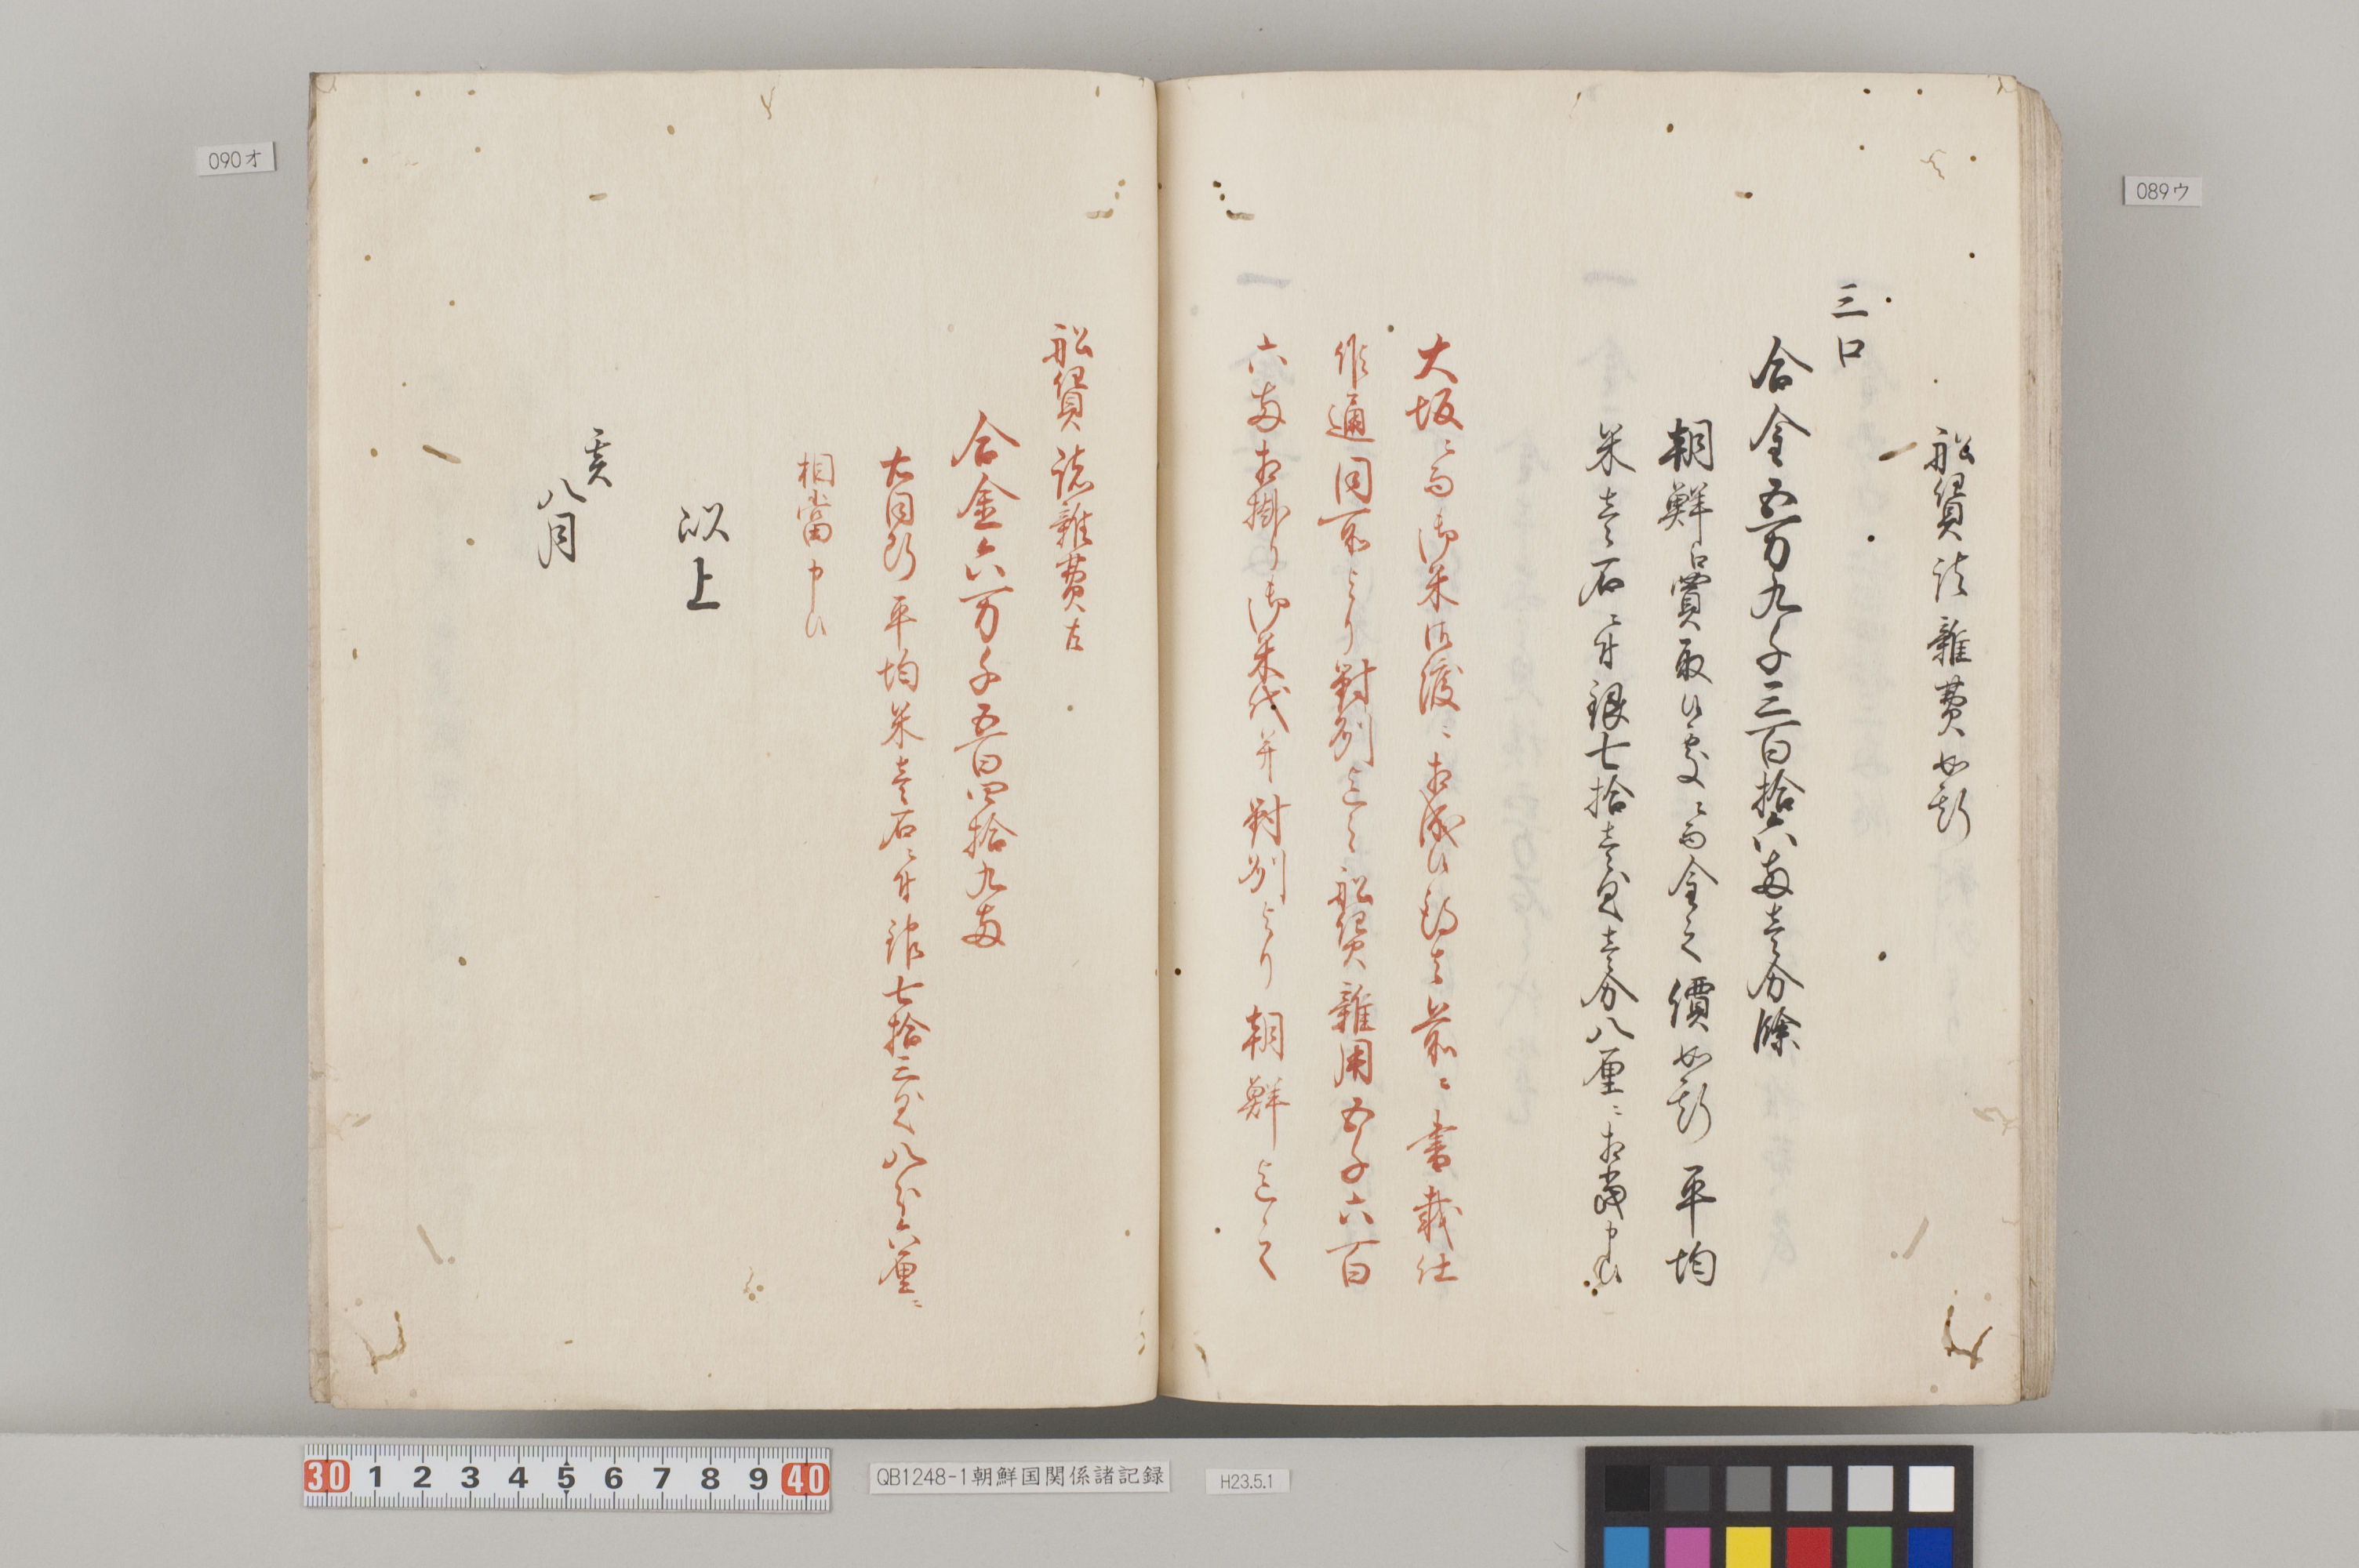 船賃諸雑費如斯
三口
合金五万九千三百拾六両壱分餘
朝鮮ニ而買取候処ニ而金之價如斯平均
米壱石ニ付銀七拾壱匁壱分八厘ニ相当申候
大坂ニ而御米御渡ニ相成候得者前ニ書載仕
候通同所より對州迄之船賃雑用五千六百
六両相掛り御米代并對州より朝鮮迄之
船賃諸雑費共
合金六万千五百四拾九両
右同断平均米壱石ニ付銀七拾三匁八分六厘ニ
相當申候
以上
亥
八月
089ウ
090オ
30 1 2 3 4 5 6 7 8 9 40
QB1248-1朝鮮国関係諸記録
H23.5.1